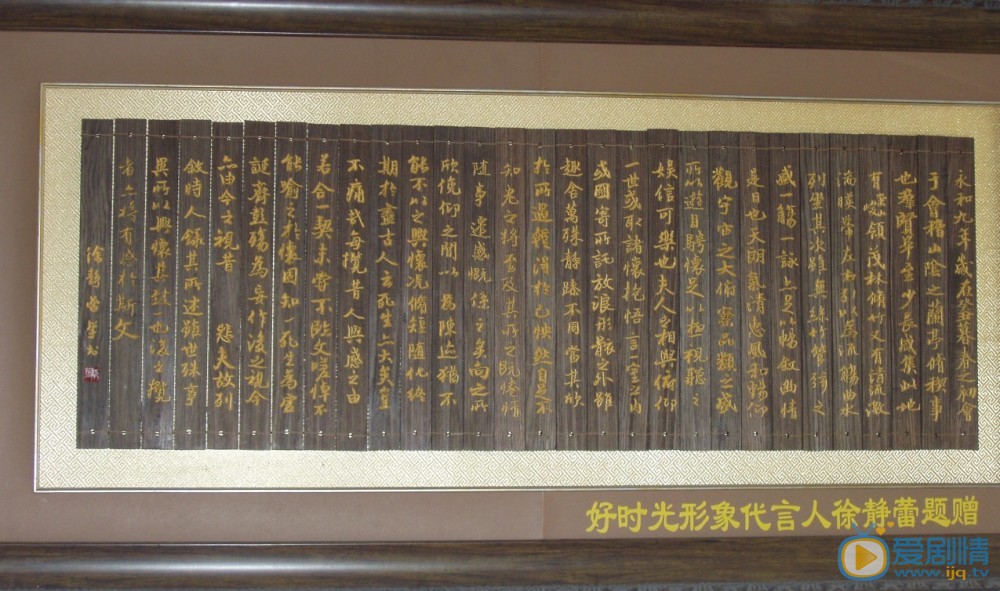 永和九年歲在癸丑暮春之初會
于會稽山陰之蘭亭脩稧事
也群賢畢至少長咸集此地
有峻領茂林脩竹又有清流激
湍暎帶左右引以為流觴曲水
列坐其次雖無絲竹管絃之
盛一觴一詠亦足以暢敘幽情
是日也天朗氣清惠風和暢仰
觀宇宙之大俯察品類之盛
所以遊目騁懷足以極視聽之
娛信可樂也夫人之相與俯仰
一世或取諸懷抱悟言一室之內
或因寄所託放浪形骸之外雖
趣舍萬殊靜躁不同當其欣
於所遇蹔得於己怏然自足不
知老之將至及其所之既惓情
隨事遷感慨係之矣向之所
欣俛仰之間以為陳迹猶不
能不以之興懷況脩短隨化終
期於盡古人云死生亦大矣豈
不痛哉每攬昔人興感之由
若合一契未嘗不臨文嗟悼不
能喻之於懷固知一死生為虛
誕齊彭殤為妄作後之視今
亦由今之視昔 悲夫故列
敘時人錄其所述雖世殊事
異所以興懷其致一也後之攬
者亦將有感於斯文
徐靜蕾
好时光形象代言人徐静蕾题赠
爱剧情
www.ijq.tv